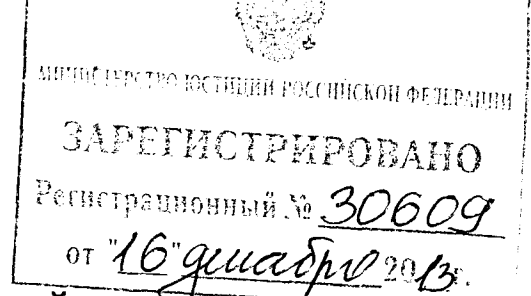 МИНИСТЕРСТВО ЮСТИЦИИ РОССИЙСКОЙ ФЕДЕРАЦИИ
ЗАРЕГИСТРИРОВАНО
Регистрационный № 30609
от "16" декабря 2013г.